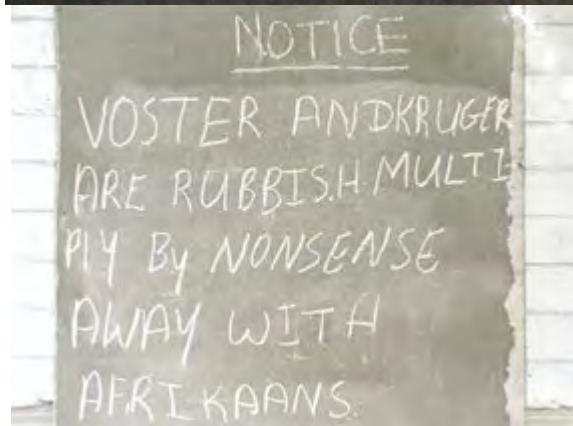 NOTICE
VOSTER ANDKRUGER
ARE RUBBIS.H. MULTI-
PLY By NONSENSE
AWAY WITH
AFRIKAANS.